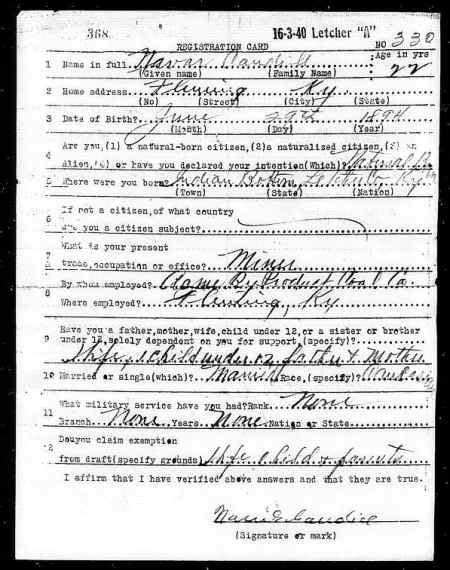 368
16-3-40 Letcher "A"
REGISTRATION CARD
NO 330
1 Name in full Navar Caudill
Age in yrs
22
(Given name) (Family Name)
2 Home address Fleming Ky
(No) (Street) (City) (State)
3 Date of Birth? June 29th 1894
(Month) (Day) (Year)
Are you,(1) a natural-born citizen,(2)a naturalized citizen,(3) an
4 alien,(4) or have you declared your intention(Which)? Natural
5 Where were you born? Indian Bottom, Ky
(Town) (State) (Nation)
If not a citizen,of what country
6 are you a citizen subject?
What is your present
7 trade,occupation or office? Miner
By whom employed? By Product Coal Co.
8 Where employed? Fleming, Ky
Have you a father,mother,wife,child under 12,or a sister or brother
9 under 12,solely dependent on you for support,(specify)?
Wife, 1 child under 12 father & Mother
10 Married or single(which)? Married Race,(specify)?
What military service have you had?Rank None
11 Branch None Years None Nation or State
Do you claim exemption
12 from draft(specify grounds) Wife Child & parents
I affirm that I have verified above answers and that they are true.
(Signature or mark)